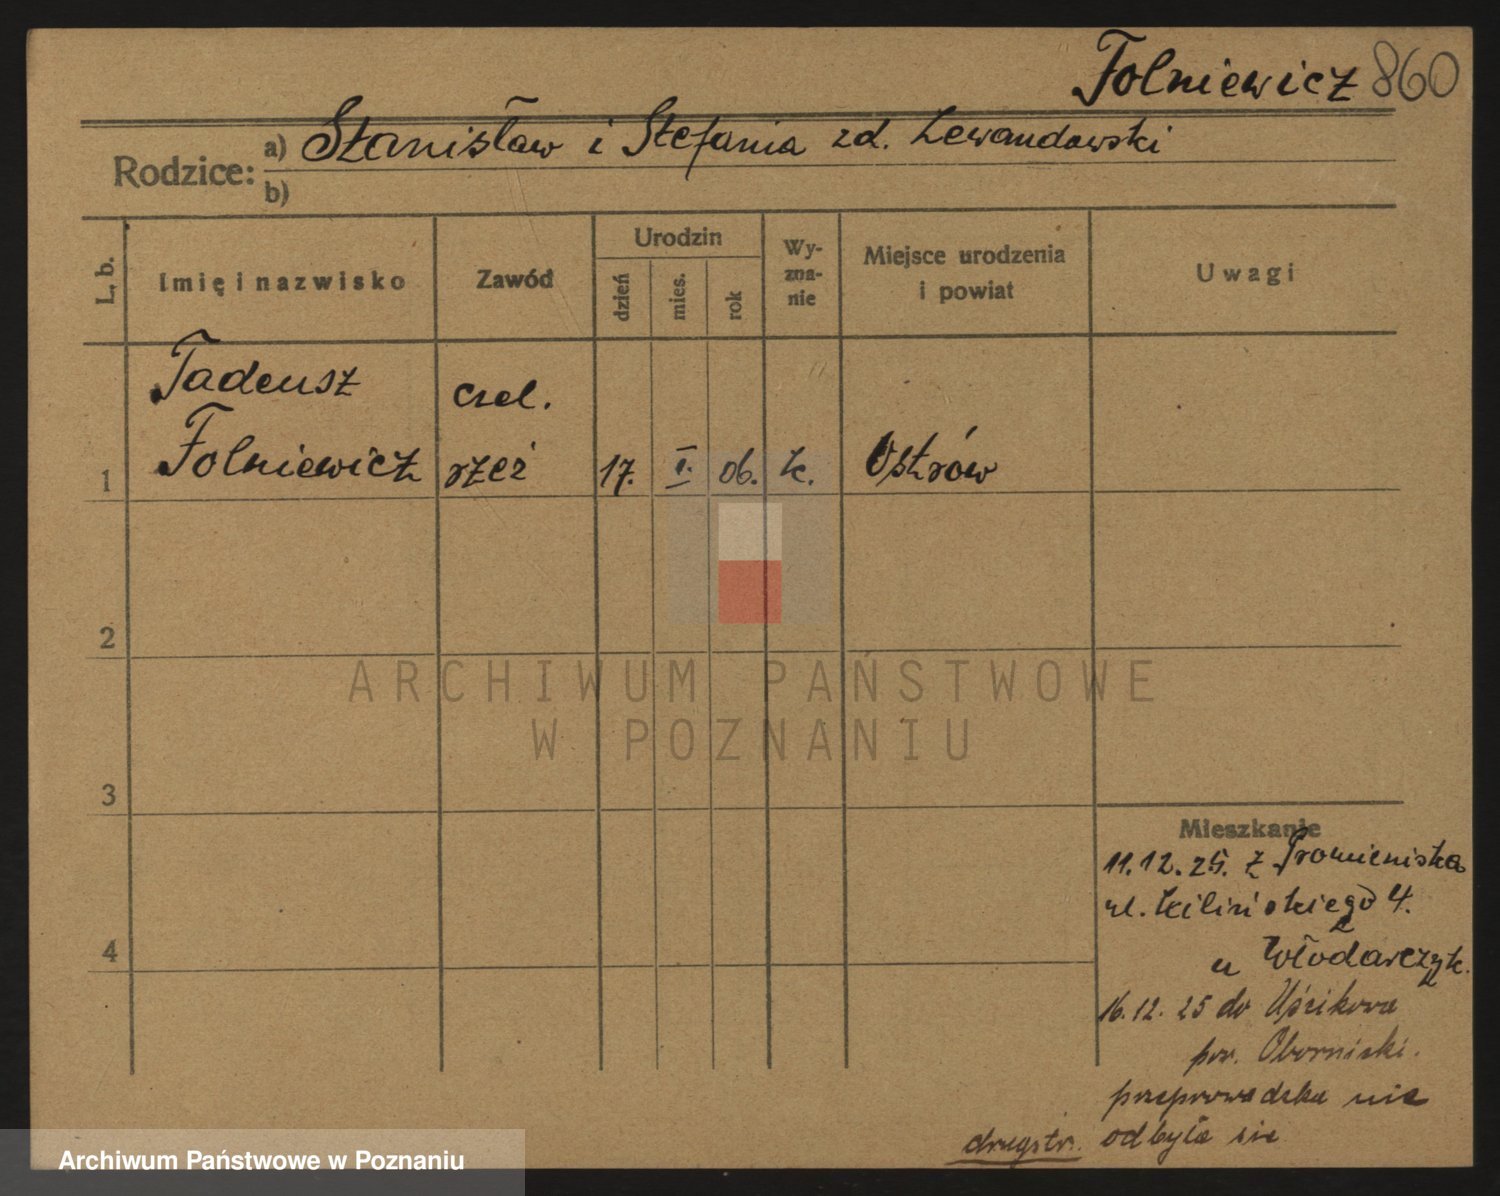 Folniewicz 860
Rodzice: a) Stanisław i Stefania zd. Lewandowski
b)
L. b.
Imię i nazwisko
Zawód
Urodzin
dzień
mies.
rok
Wy-
zna-
nie
Miejsce urodzenia
i powiat
Uwagi
Tadeusz czel.
1 Folniewicz rzeź 17. I. 06. k. Ostrów
2
ARCHIWUM PAŃSTWOWE
W POZNANIU
3
4
Mieszkanie
11.12.25. z
ul. Kilińskiego 4.
u Włodarczyk.
16.12.25 do Uścikowa
pow. Obornicki.
przeprowadzka nie
drugstr. odbyła sie
Archiwum Państwowe w Poznaniu